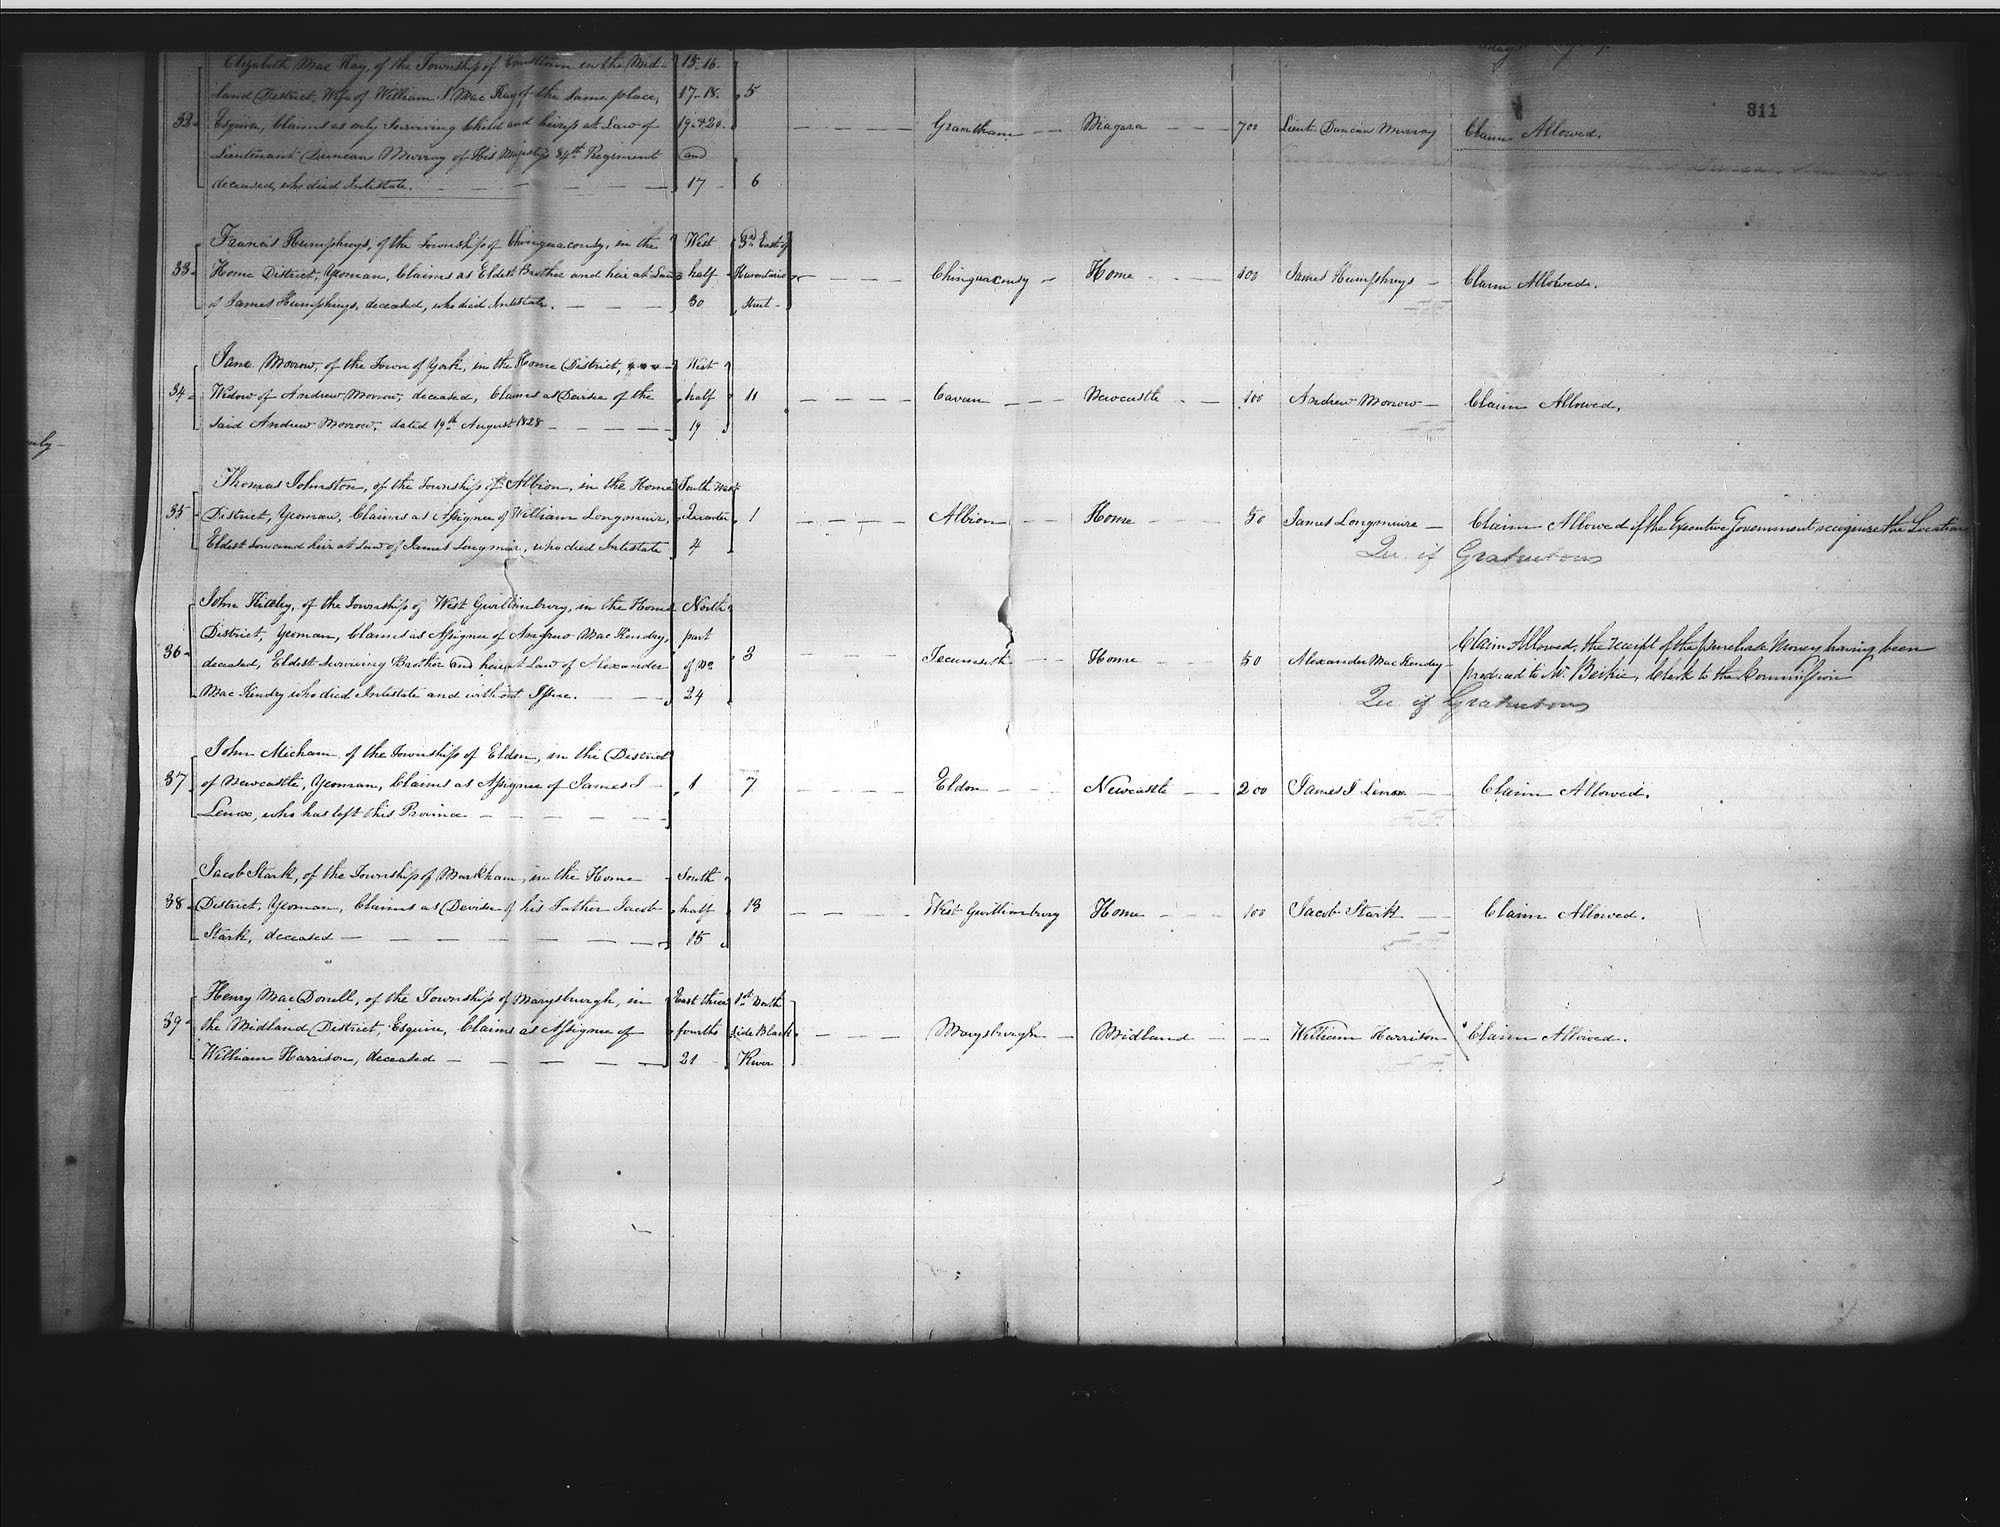 311
Elizabeth Mac Kay, of the Township of Ernesttown in the Mid-
land District, Wife of William S Mac Kay of the same place,
32 Esquire, Claims as only surviving Child and heiress at Law of
Lieutenant Duncan Murray of His Majesty's 84th Regiment
deceased, who died Intestate.
15. 16.
17. 18.
19. & 20.
and
17
5
6
Grantham
Niagara
700
Lieut. Duncan Murray
Claim Allowed.
Francis Humphreys, of the Township of Chinguacousy, in the
33 Home District, Yeoman, Claims as Eldest Brother and heir at Law
of James Humphreys, deceased, who died Intestate.
West
half
30
3rd East of
Hurontario
Street
Chinguacousy
Home
100
James Humphreys
Claim Allowed.
Jane Morrow, of the Town of York, in the Home District,
34 Widow of Andrew Morrow, deceased, Claims as Devisee of the
said Andrew Morrow, dated 19th August 1828
West
half
19
11
Cavan
Newcastle
100
Andrew Morrow
Claim Allowed.
Thomas Johnston, of the Township of Albion, in the Home
35 District, Yeoman, Claims as Assignee of William Longmuir,
Eldest Son and heir at Law of James Longmuir, who died Intestate
South West
Quarter
4
1
Albion
Home
50
James Longmuire
Claim Allowed if the Executive Government recognize the Location
Qu. if Gratuitous
John Kitely, of the Township of West Gwillimbury, in the Home
District, Yeoman, Claims as Assignee of Andrew Mac Kendry,
36 deceased, Eldest surviving Brother and heir at Law of Alexander
Mac Kendry who died Intestate and without Issue.
North
part
of No
24
3
Tecumseth
Home
50
Alexander Mac Kendry
Claim Allowed, the receipt of the purchase Money having been
produced to Mr. Beikie, Clerk to the Commission
Qu. if Gratuitous
John Micham of the Township of Eldon, in the District
37 of Newcastle, Yeoman, Claims as Assignee of James J
Lenox, who has left this Province
1
7
Eldon
Newcastle
200
James J Lenox
Claim Allowed.
Jacob Stark, of the Township of Markham, in the Home
38 District, Yeoman, Claims as Devisee of his Father Jacob
Stark, deceased
South
half
15
13
West Gwillimbury
Home
100
Jacob Stark
Claim Allowed.
Henry Mac Donell, of the Township of Marysburgh, in
39 the Midland District Esquire, Claims as Assignee of
William Harrison, deceased
East three
fourths
21
1st North
side Black
River
Marysburgh
Midland
William Harrison
Claim Allowed.